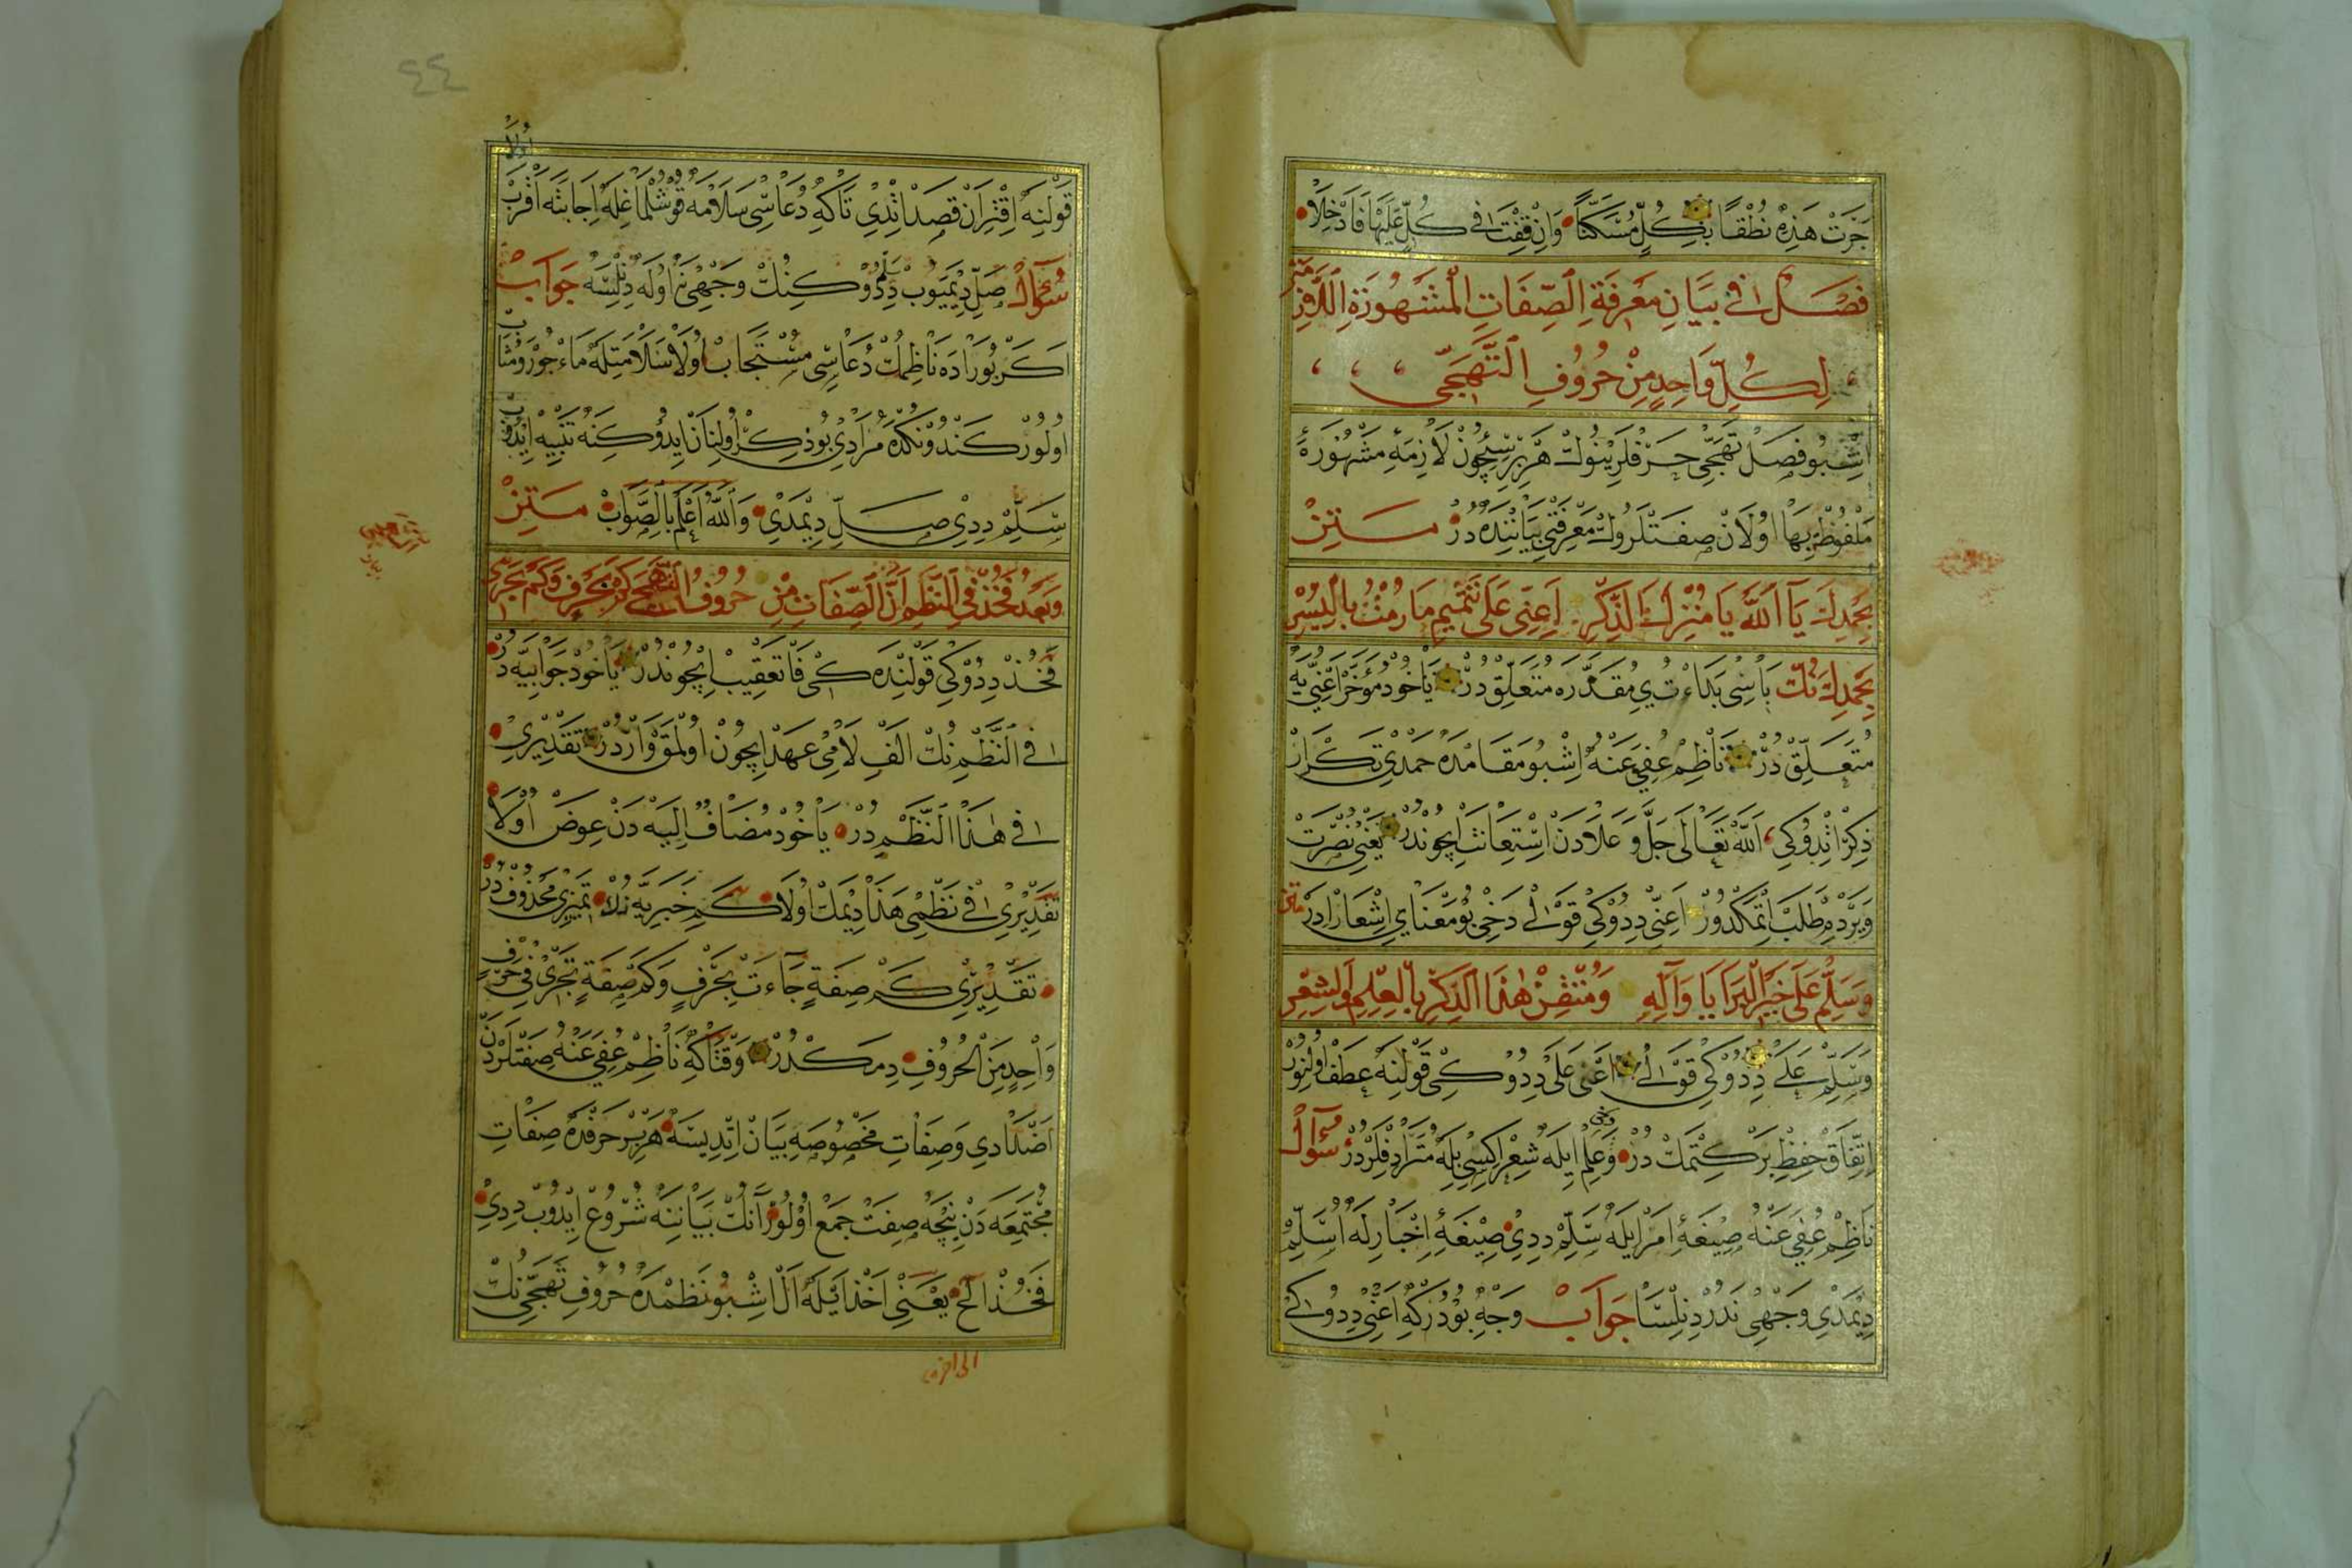 جَرَتْ هَذِهْ نُطْقًا بِكُلٍّ مُسَكَّنًا وَاِنْ قِفْتَ فِى كُلٍّ عَلَيْهَا فَادْخِلَا
فَصْلٌ فِى بَيَانِ مَعْرِفَةِ الصِّفَاتِ الْمَشْهُورَةِ اللَّازِمَةِ
لِكُلِّ وَاحِدٍ مِنْ حُرُوفِ التَّهَجِّى
اِشْبُو فَصِلْ تَهَجِّى حَرْفْلَرِينُوكْ هَرْ بِرِسِيچُونْ لَازِمَهِ مَشْهُورَهْ
مَلْفُوظٌ بِهَا اُولَانْ صِفَتْلَرُوكْ مَعْرِفَتِى بَيَانِنْدَهْ دُرْ مَتِنْ
بِحَمْدِكَ يَا اَللّٰهُ يَا مُنْزِلَ الذِّكْرِ اَعِنِّى عَلَى تَتْمِيمِ مَا رُمْتُ بِالْيُسْرِ
بِحَمْدِكَ نُكْ بَاسِى بَدَاءْتُ يِ مُقَدَّرَهْ مُتَعَلِّقْ دُرْ يَاخُودْ مُؤَخَّرْ اَعِنِّى يَهْ
مُتَعَلِّقْ دُرْ نَاظِمْ عُفِىَ عَنْهُ اِشْبُو مَقَامْدَهْ حَمْدِى تَكْرَارْ
ذِكِرْ اِتْدُوكِى اَللّٰهُ تَعَالَى جَلَّ وَعَلَادَنْ اِسْتِعَانَتْ اِيچُونْدُرْ يَعْنِى نُصْرَتْ
وَيَرْدِمْ طَلَبْ اِتْمَكْدُورْ اَعِنِّى دِدُوكِى قَوْلِى دَخِى بُو مَعْنَايِ اِشْعَارْ اِدَرْ مَتِنْ
وَسَلِّمْ عَلَى خَيْرِ الْبَرَايَا وَآلِهِ وَمُتْقِنِ هٰذَا الذِّكْرِ بِالْعِلْمِ وَالشِّعْرِ
وَسَلِّمْ عَلَى دِدُوكِى قَوْلِى اَعِنِّى عَلَى دِدُوكِى قَوْلِنَهْ عَطَفْ اُولُنُورْ
اِتِّقَانْ حِفْظِ بَرْكِتْمَكْ دُرْ وَعِلِمْ اِيلَهْ شِعِرْ اِكِسِى بِلَهْ مُتَرَادِفْلَرْدُرْ سُؤَالْ
نَاظِمْ عُفِىَ عَنْهُ صِيغَهِٔ اَمْرْ اِيلَهْ سَلِّمْ دِدِى صِيغَهِٔ اِخْبَارِلَهْ اُسَلِّمْ
دِيمَدِى وَجْهِى نَدُرْ دِنِلْسَا جَوَابْ وَجْهِ بُودُرْكِهْ اَعِنِّى دِدُوكِى
قَوْلِنَهْ اِقْتِرَانْ قَصْدْ اِتْدِى تَاكِهْ دُعَاسِى سَلَامَهْ قُوشُلْمَاغِلَهْ اِجَابَتَهْ اَقْرَبْ
اُولَا
سُؤَالْ صَلِّ دِيمَيُوبْ سَلِّمْ دِدُوكِنُكْ وَجْهِى نَهْ اُولَهْ دِنِلْسَهْ جَوَابْ
اَكَرْ بُورَادَهْ نَاظِمُكْ دُعَاسِى مُسْتَجَابْ اُولَا سَلَامَتِلَهْ مَاءْجُورْ وَمُثَابْ
اُولُورْ كَنْدُونْكْدَهْ مُرَادِى بُو ذِكِرْ اُولِنَانْ اِيدُوكِنَهْ تَنْبِيهْ اِيدُوبْ
سَلِّمْ دِدِى صَلِّ دِيمَدِى وَاللّٰهُ اَعْلَمُ بِالصَّوَابْ مَتِنْ
وَبَعْدُ فَخُذْ فِى النَّظْمِ اَنَّ الصِّفَاتِ مِنْ حُرُوفِ التَّهَجِّى كَمْ بِحَرْفٍ وَكَمْ تَجْرِى
فَخُذْ دِدُوكِى قَوْلِنْدَهْ كِى فَا تَعْقِيبْ اِيچُونْدُرْ يَاخُودْ جَوَابِيَّهْ دُرْ
فِى النَّظْمِ نُكْ اَلِفِ لَامِى عَهْدْ اِيچُونْ اُولْمَقْ وَارْدُرْ تَقْدِيرِى
فِى هٰذَا النَّظْمِ دُرْ يَاخُودْ مُضَافٌ اِلَيْهِ دَنْ عِوَضْ اُولَا
تَقْدِيرِى فِى نَظْمِى هَذَا دِيمَكْ اُولَا كَمْ خَبَرِيَّهْ نُكْ تَمْيِيزِى مَحْذُوفْ دُرْ
تَقْدِيرِى كَمْ صِفَةٍ جَاءَتْ بِحَرْفٍ وَكَمْ صِفَةٍ تَجْرِى فِى حَرْفٍ
وَاحِدٍ مِنَ الْحُرُوفِ دِمَكْدُرْ وَقْتَاكِهْ نَاظِمْ عُفِىَ عَنْهُ صِفَتْلَرْدَنْ
اَضْدَادِى وَصِفَاتِ مَخْصُوصَهِ بَيَانْ اِتْدِيسَهْ هَرْ بِرْ حَرْفْدَهْ صِفَاتِ
مُجْتَمِعَهْ دَنْ نِيچَهْ صِفَتْ جَمْعْ اُولُورْ آنُكْ بَيَانِنَهْ شُرُوعْ اِيدُوبْ دِدِى
فَخُذْ الخ يَعْنِى اَخْذْ اَيْلَهْ اَلْ اِشْبُو نَظْمْدَهْ حُرُوفِ تَهَجِّى نُكْ
الى اخره
٤٤